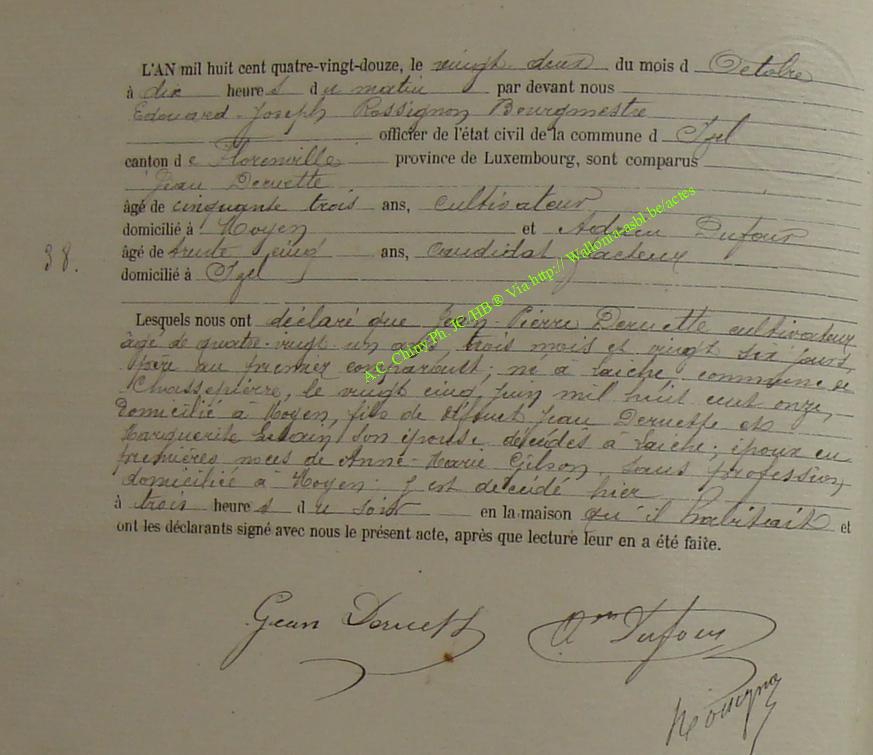 L'AN mil huit cent quatre-vingt-douze, le vingt deux du mois d Octobre
à dix heures du matin par devant nous
Edouard-Joseph Rossignon Bourgmestre
officier de l'état civil de la commune d Izel
canton de Florenville province de Luxembourg, sont comparus
Jean Deruette
âgé de cinquante trois ans, cultivateur
domicilié à Moyen et Adrien Dufour
âgé de trente cinq ans, candidat facteur
domicilié à Izel
38.
Lesquels nous ont déclaré que Jean-Pierre Deruette cultivateur
âgé de quatre-vingt un ans, trois mois et vingt six jours,
père au premier comparant; né à Laiche commune de
Chassepierre, le vingt cinq juin mil huit cent onze,
domicilié à Moyen, fils de défunt Jean Deruette et
Marguerite son épouse décédés à Laiche; époux en
premières noces de Anne-Marie Gilson, sans profession,
domiciliée à Moyen. y est décédé hier
à trois heures du soir en la maison qu'il habitait et
ont les déclarants signé avec nous le présent acte, après que lecture leur en a été faite.
Jean Deruette Dufour
Rossignon
A.C. Chiny Ph Jc/HB ® Via http:// Wallonia-asbl.be/actes